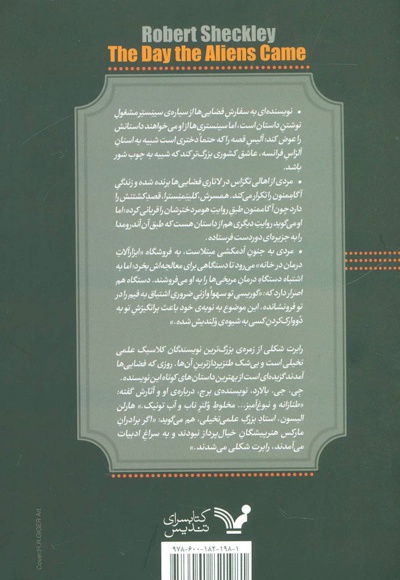 Robert Sheckley
The Day the Aliens Came
• نویسنده‌ای به سفارش فضایی‌ها از سیاره‌ی سینستر مشغول
نوشتن داستان است، اما سینستری‌ها از او می‌خواهند داستانش
را عوض کند: آلیس قصه را که حتماً دختری است شبیه به استان
آلزاس فرانسه، عاشق کشوری بزرگ‌تر کند که شبیه به چوب شور
باشد.
• مردی از اهالی تگزاس در لاتاری فضایی‌ها برنده شده و زندگی
آگاممنون را تکرار می‌کند. همسرش، کلیتمنسترا، قصد کشتنش را
دارد چون آگاممنون طبق روایت هومر دخترشان را قربانی کرده؛ اما
او می‌گوید روایت دیگری هم از داستان هست که طبق آن آندرومدا
را به جزیره‌ای دوردست فرستاده.
• مردی به جنون آدمکشی مبتلاست. به فروشگاه «ابزارآلات
درمان در خانه» می‌رود تا دستگاهی برای معالجه‌اش بخرد؛ اما به
اشتباه دستگاه درمان مریخی‌ها را به او می‌فروشند. دستگاه هم
اصرار دارد که: «گوریسی تو سهواً وازنی ضروری اشتیاق به فیم را در
تو فرونشانده. این موضوع به نوبه‌ی خود باعث برانگیزش تو به
دووارک کردن کسی به شیوه‌ی ولندیش شده.»
رابرت شکلی از زمره‌ی بزرگ‌ترین نویسندگان کلاسیک علمی
تخیلی است و بی‌شک طنزپردازترین آن‌ها. روزی که فضایی‌ها
آمدند گزیده‌ای از بهترین داستان‌های کوتاه این نویسنده.
جی. جی. بالارد، نویسنده‌ی برج، درباره‌ی او و آثارش گفته:
«طنازانه و نبوغ‌آمیز... مخلوط ولتر ناب و آب تونیک.» هارلن
الیسون، استاد بزرگ علمی‌تخیلی، هم می‌گوید: «اگر برادران
مارکس هنرپیشگان خیال‌پرداز نبودند و به سراغ ادبیات
می‌آمدند، رابرت شکلی می‌شدند.»
کتابسرای
تندیس
۹۷۸-۶۰۰-۱۸۲-۱۹۸-۱
Cover: H.R.GIGER Art